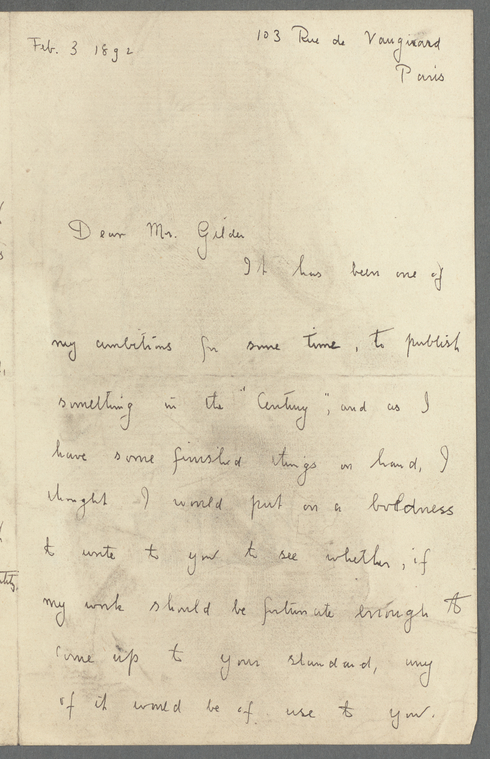 Feb. 3 1892
103 Rue de Vaugirard
Paris
Dear Mr. Gilder
It has been one of
my ambitions for some time, to publish
something in the "Century", and as I
have some finished things on hand, I
thought I would put on a boldness
to write to you to see whether, if
my work should be fortunate enough to
come up to your standard, any
of it would be of use to you.